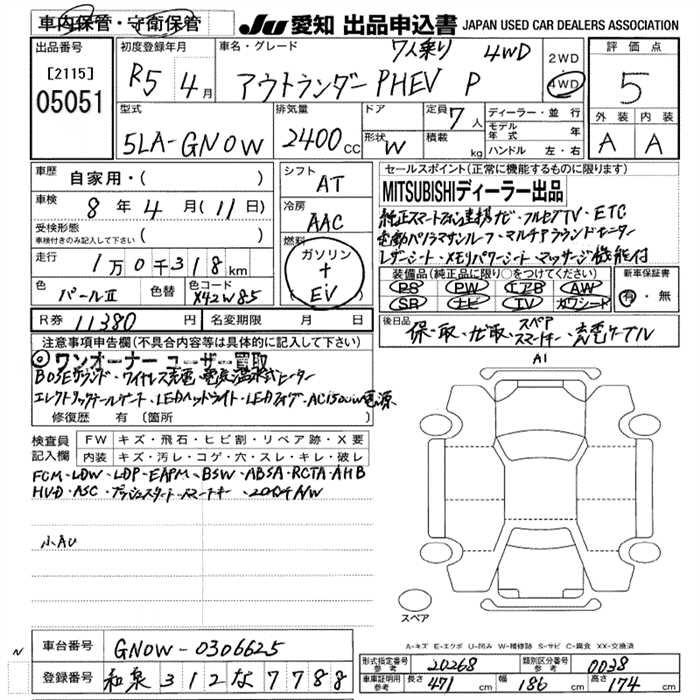 車内保管・守衛保管
JU 愛知 出品申込書 JAPAN USED CAR DEALERS ASSOCIATION
出品番号
[2115]
05051
初度登録年月
R5 4月
車名・グレード 7人乗り 4WD
アウトランダーPHEV P
2WD
4WD
評価点
5
外装 内装
A A
型式
5LA-GN0W
排気量
2400 CC
ドア
形状 W
定員 7人
積載 kg
ディーラー・並行
モデル年式 年
ハンドル 左・右
車歴
自家用・( )
車検
8年4月(11日)
受検形態
車検付きのみ記入して下さい ( )
走行
1万0千318km
色
パールⅡ
色替
色コード
X42W85
シフト
AT
冷房
AAC
燃料
ガソリン
+
EV
R券 11380円
名変期限 月 日
セールスポイント(正常に機能するものに限ります)
MITSUBISHIディーラー出品
純正スマートフォン連携ナビ・フルセグTV・ETC
電動パノラマサンルーフ・マルチアラウンドモニター
レザーシート・メモリパワーシート・マッサージ機能付
装備品(純正品に限り○をつけてください)
PS PW エアB AW
SR ナビ TV カワシート
新車保証書
有・無
後日品
保・取・ナビ取・スペアスマートキー・充電ケーブル
注意事項申告欄(不具合内容等は具体的に記入して下さい)
◎ワンオーナー ユーザー買取
BOSEサウンド・ワイヤレス充電・電気温水式ヒーター
エレクトリックテールゲート・LEDヘッドライト・LEDフォグ・AC1500W電源
修復歴 有 (箇所 )
検査員記入欄
FW キズ・飛石・ヒビ割・リペア跡・X要
内装 キズ・汚レ・コゲ・穴・スレ・キレ・破レ
FCM・LDW・LDP・EAPM・BSW・ABSA・RCTA・AHB
HUD・ASC・プッシュスタート・スマートキー・20インチAW
小AU
A1
スペア
A-キズ E-エクボ U-凹み W-補修跡 S-サビ C-腐食 XX-交換済
N
車台番号 GN0W-0306625
登録番号 和泉 312 な 7788
形式指定番号 参考 20268
類別区分番号 参考 0038
車庫証明用 参考 長さ 471cm 幅 186cm 高さ 174cm